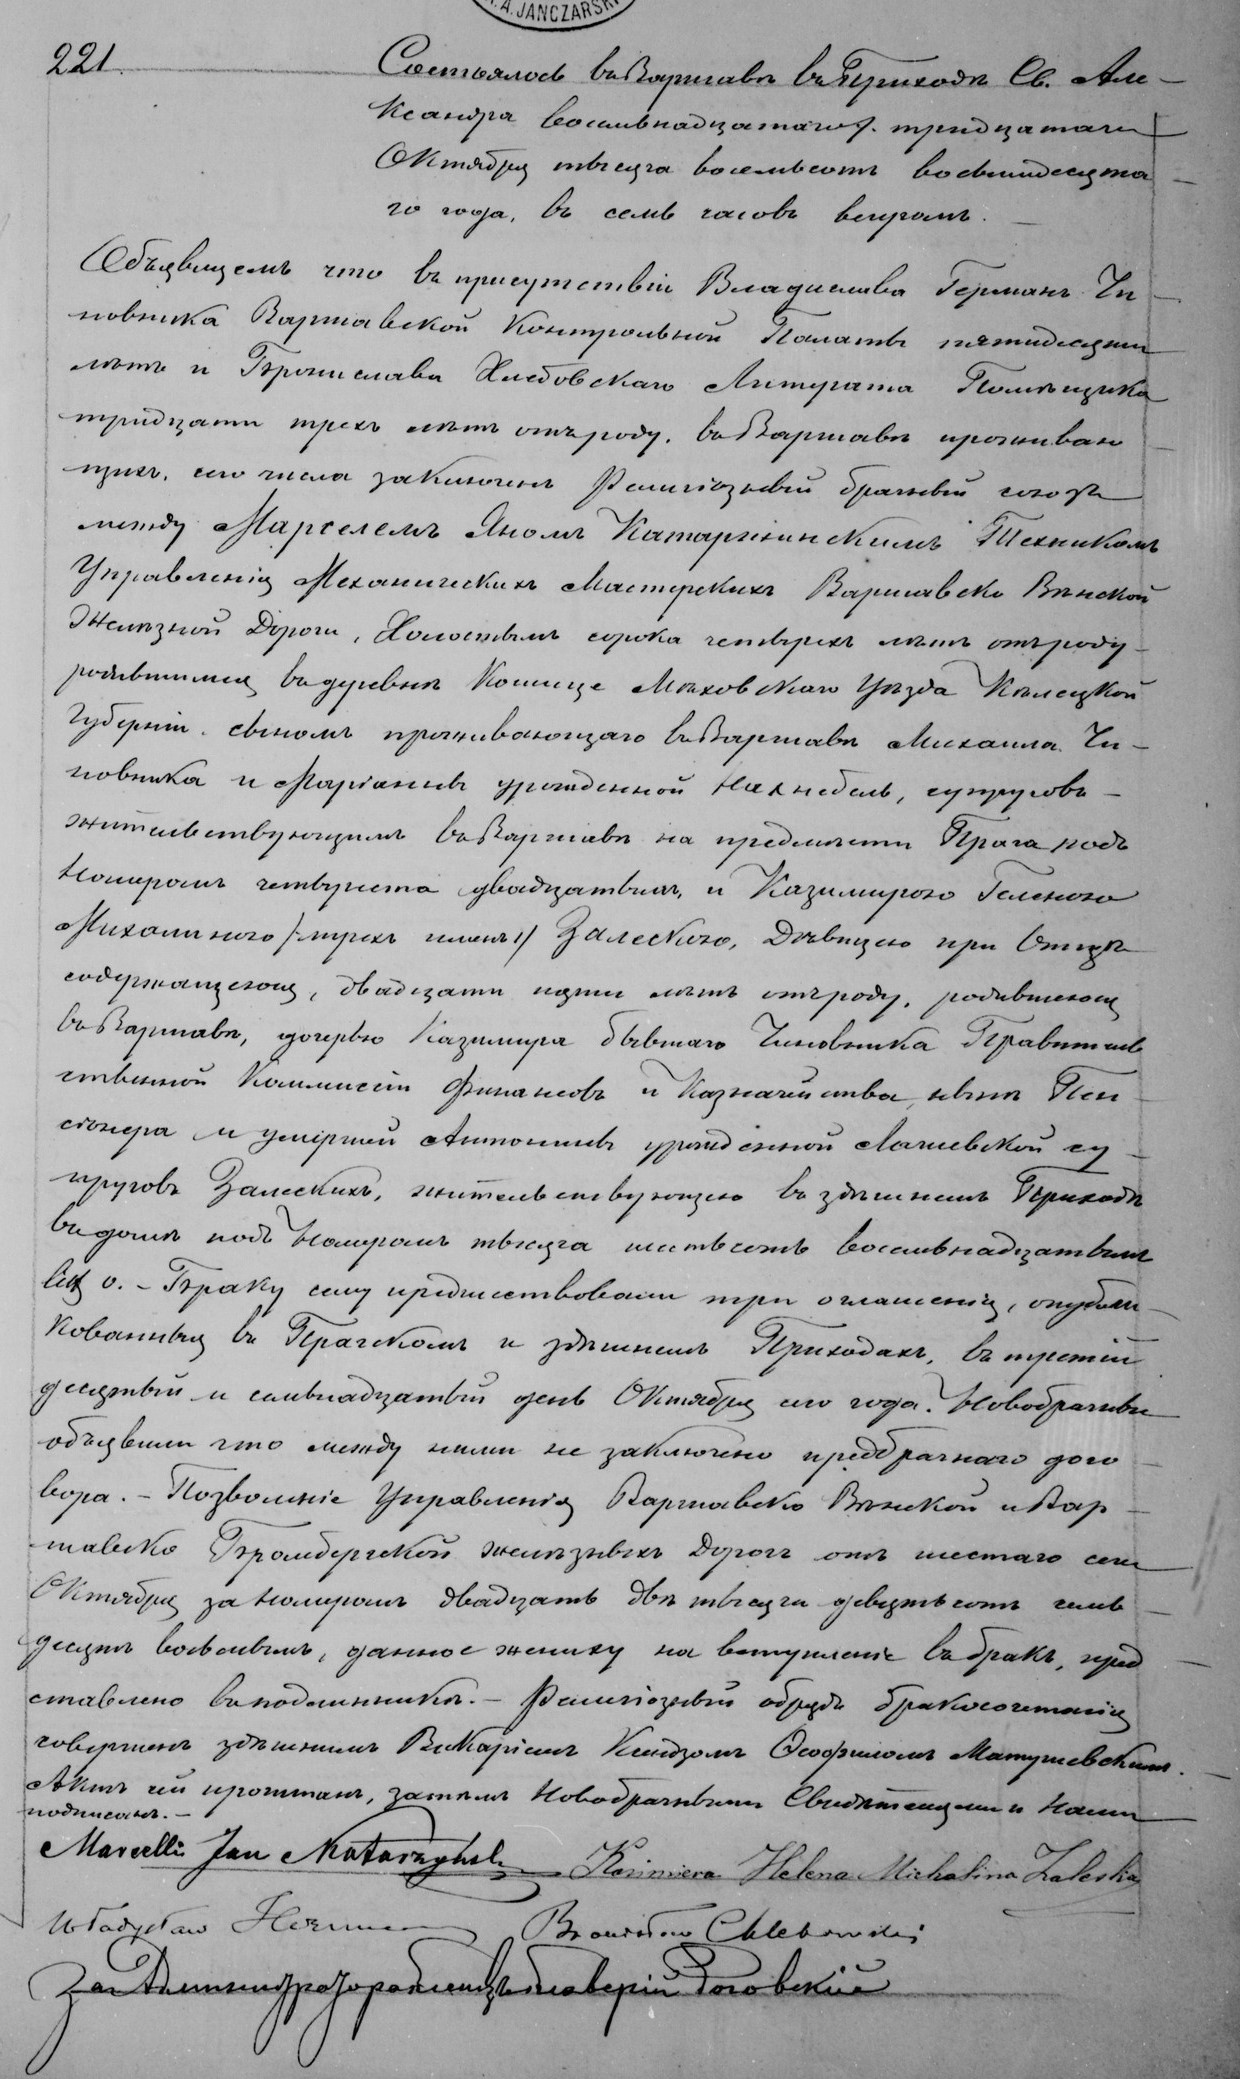 A. JANCZARSKI
221.
Состоялось въ Варшавѣ въ Приходѣ Св. Але-
ксандра восемьнадцатаго /. тридцатаго
Октября тысяча восемьсотъ восьмидесята
го года, въ семь часовъ вечеромъ.
Объявляемъ что въ присутствіи Владислава Германъ Чи-
новника Варшавской Контрольной Палаты пятидесяти
лѣтъ и Бронислава Хлебовскаго Литерата Помѣщика
тридцати трехъ лѣтъ отъ роду, въ Варшавѣ проживаю
щихъ, сего числа заключенъ Религіозный брачный союзъ
между Марселемъ Яномъ Катаржинскимъ Техникомъ
Управленія Механическихъ Мастерскихъ Варшавско Вѣнской
Желѣзной Дороги, Холостымъ сорока четырехъ лѣтъ отъ роду
родившимся въ деревнѣ Кошице Мѣховскаго Уѣзда Кѣлецкой
Губерніи, сыномъ проживающаго въ Варшавѣ Михаила Чи-
новника и Маріанны урожденной Нахнебель, супруговъ
жительствующимъ въ Варшавѣ на предмѣстьи Прага подъ
Номеромъ четыреста двадцатымъ, и Казимирою Геленою
Михалиною /трехъ именъ/ Залескою, Дѣвицею при Отцѣ
содержащеюся, двадцати пяти лѣтъ отъ роду, родившеюся
въ Варшавѣ, дочерью Казимира бывшаго Чиновника Правитель
ственной Коммисіи Финансовъ и Казначейства, нынѣ Пен
сіонера и умершей Антонины урожденной Лащевской су-
пруговъ Залескихъ, жительствующею въ здѣшнемъ Приходѣ
въ домѣ подъ Номеромъ тысяча шестьсотъ восемьнадцатымъ
о. - Браку сему предшествовали три оглашенія, опубли-
кованныя въ Прагскомъ и здѣшнемъ Приходахъ, въ третій
десятый и семьнадцатый день Октября сего года. Новобрачные
объявили что между ними не заключено предбрачнаго дого
вора. - Позволеніе Управленія Варшавско Вѣнской и Вар
шавско Бромбергской желѣзныхъ Дорогъ отъ шестаго сего
Октября за Номеромъ двадцать двѣ тысячи девятьсотъ семь
десятъ восьмымъ, данное жениху на вступленіе въ бракъ, пред
ставлено въ подлинникѣ. - Религіозный обрядъ бракосочетанія
совершенъ здѣшнимъ Викаріемъ Ксендзомъ Ѳеофиломъ Матушевскимъ.
Актъ сей прочитанъ, затѣмъ Новобрачными Свидѣтелями и Нами
подписанъ. -
Marcelli Jan Katarzyński
Kazimiera Helena Michalina Zaleska
Władysław Herman
Bronisław Chlebowski
За Администратора Ксендзъ Ксаверій Роговскій